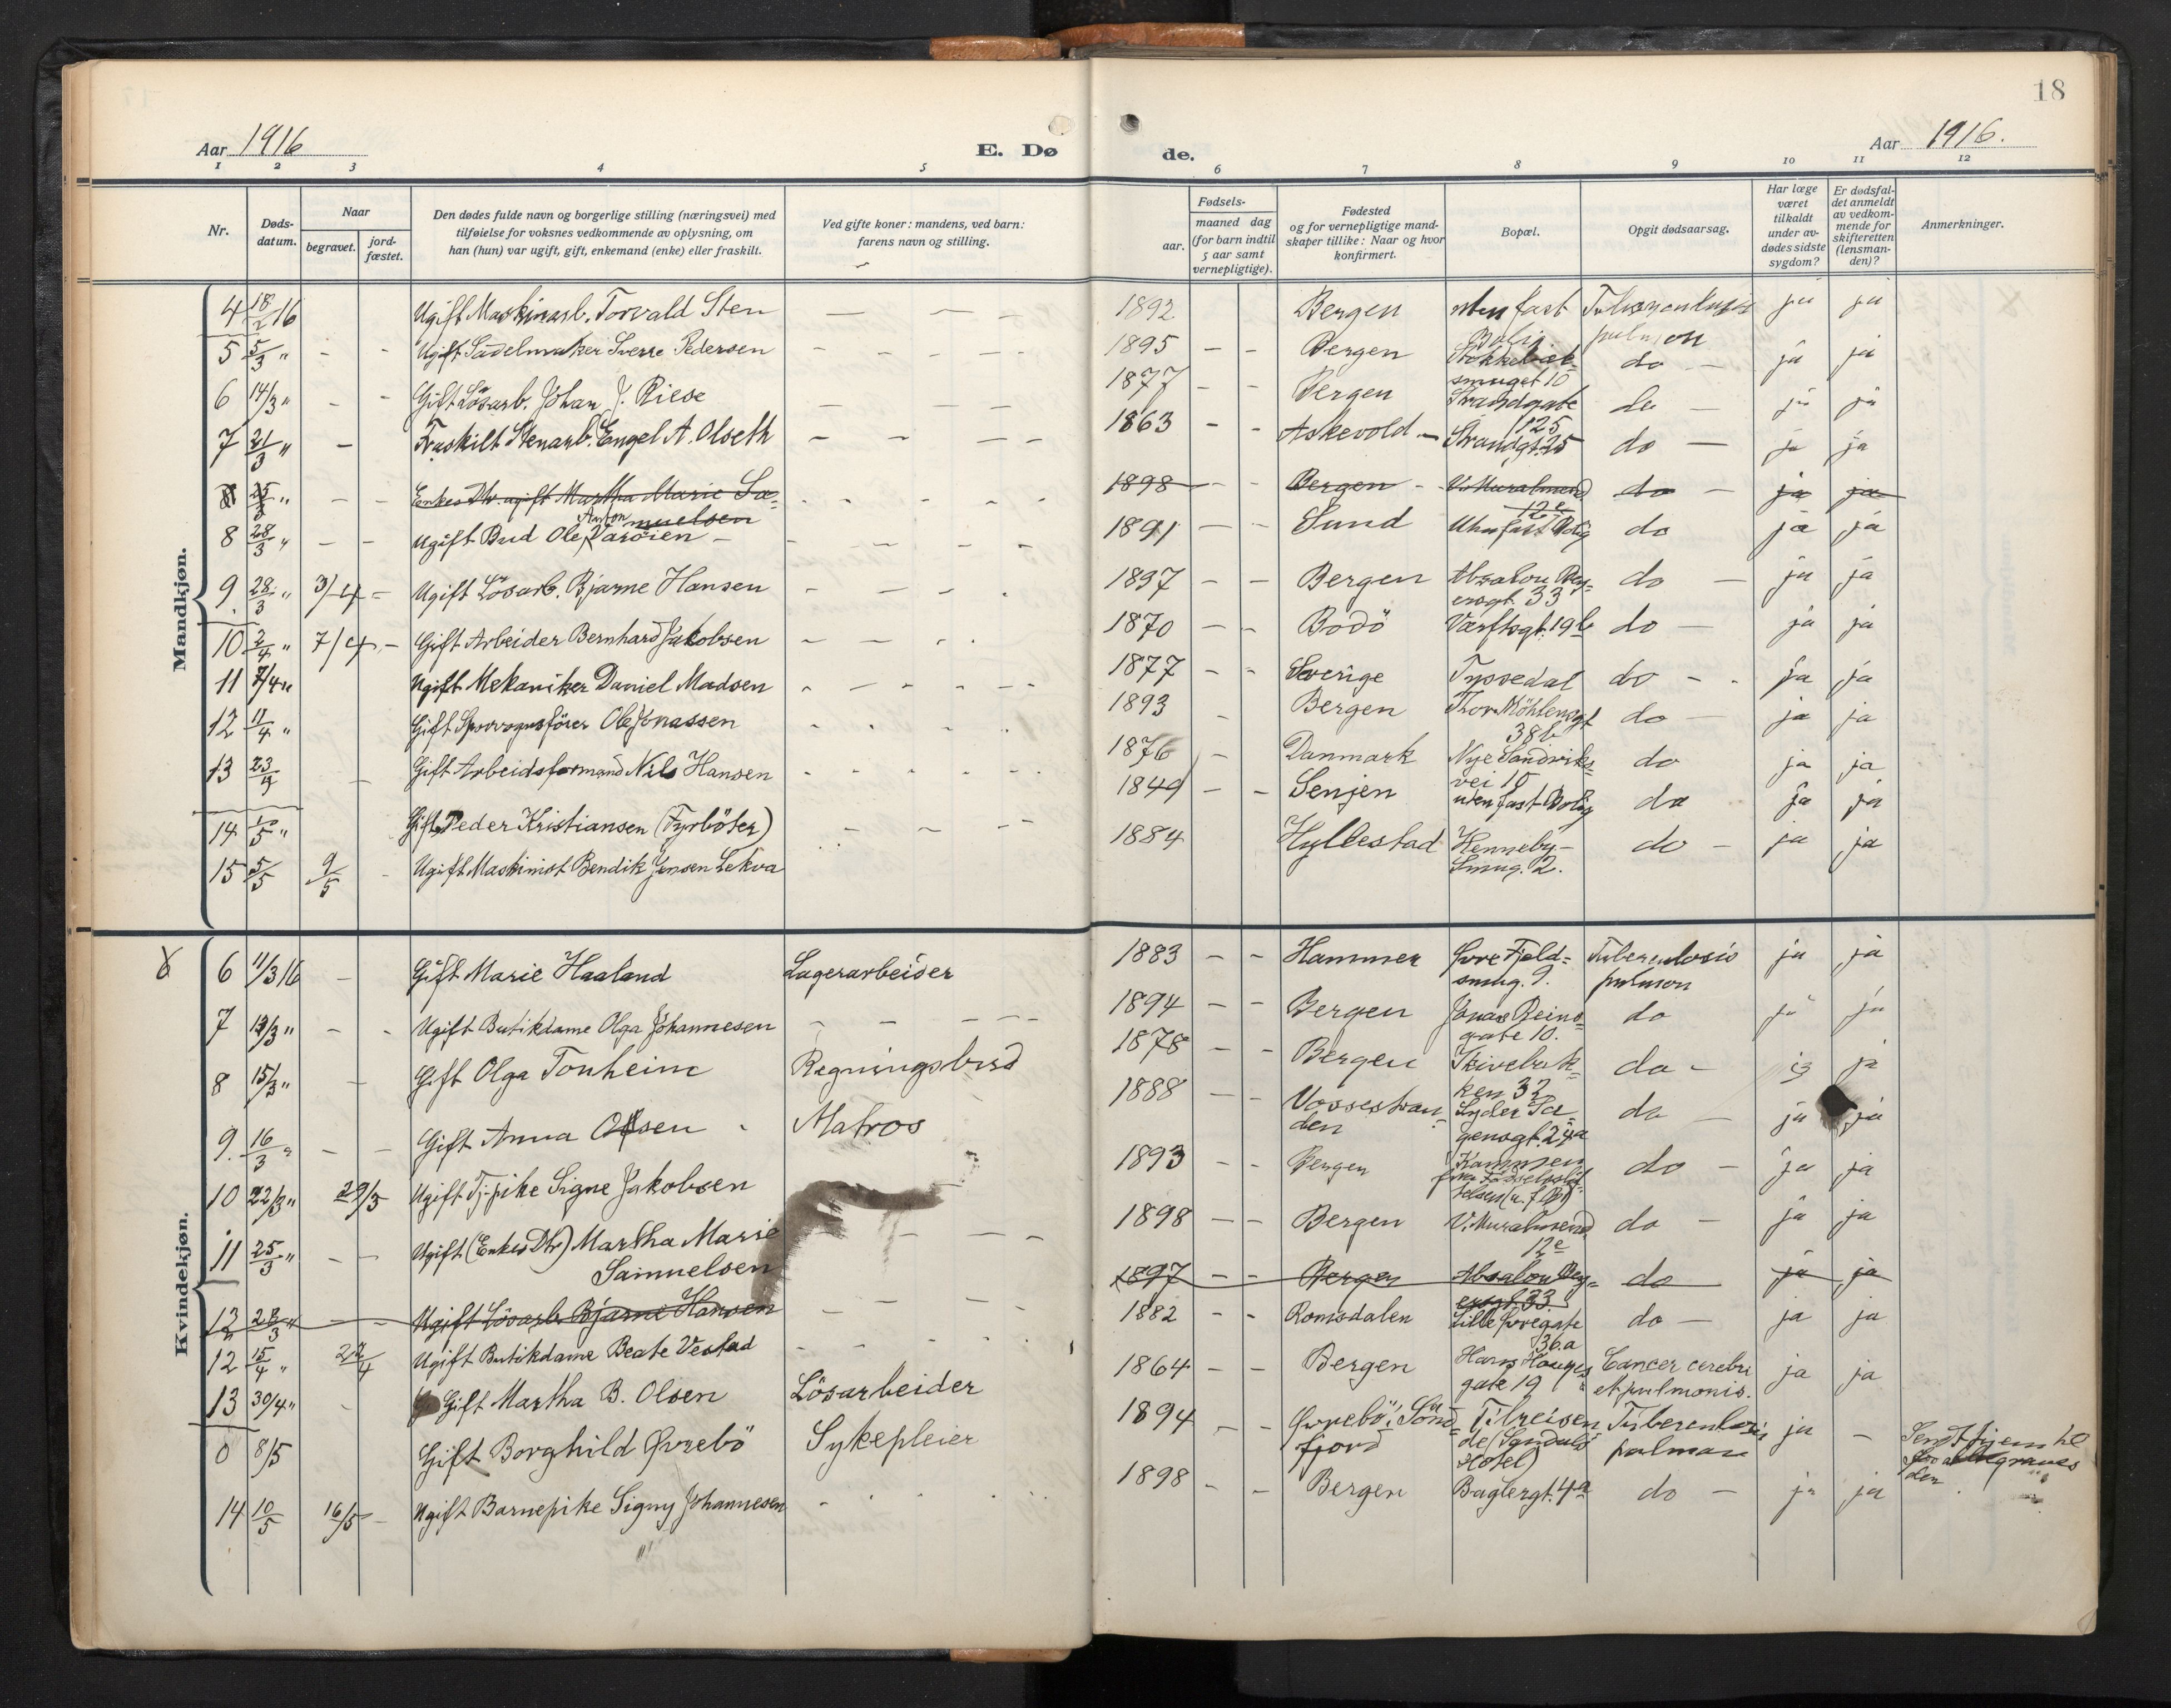 18
Aar 1916
E. Dø
de.
Aar 1916.
1 2 3 4 5 6 7 8 9 10 11 12
Nr.
Døds-
datum.
Naar
begravet.
jord-
fæstet.
Den dødes fulde navn og borgerlige stilling (næringsvei) med
tilføielse for voksnes vedkommende av oplysning, om
han (hun) var ugift, gift, enkemand (enke) eller fraskilt.
Ved gifte koner: mandens, ved barn:
farens navn og stilling.
Fødsels-
aar.
maaned dag
(for barn indtil
5 aar samt
vernepligtige).
Fødested
og for vernepligtige mand-
skaper tillike: Naar og hvor
konfirmert.
Bopæl.
Opgit dødsaarsag.
Har læge
været
tilkaldt
under av-
dødes sidste
sygdom?
Er dødsfal-
det anmeldt
av vedkom-
mende for
skifteretten
(lensman-
den)?
Anmerkninger.
Mandkjøn.
4 18/2 16 Ugift Maskinarb. Torvald Sten — — — — 1892 Bergen uten fast Bolig Tuberculosis pulmon ja ja
5 5/3 " - - Ugift Sadelmaker Sverre Pedersen - - - - 1895 - - Bergen Stokkebæk-smuget 10 do — ja ja
6 14/3 " - - Gift Løsarb. Johan J. Riese — — — 1877 - - Bergen Strandgate 125 do — ja ja
7 21/3 " - Fraskilt Stenarb. Engel A. Olseth - - - - 1863 - - Askevold - Strandgt. 25 do — ja ja
8 25/3 " - - Enkes Dtr. ugift Martha Marie Sa-muelsen - - - - 1898 - - Bergen - V. Muralmend 12e do — ja ja
8 28/3 " - - Ugift Bud Ole Anton Varøien - - - - 1891 - - Sund Uten fast Bolig do ja ja
9. 28/3 " 3/4 - Ugift Løsarb. Bjarne Hansen - - - . 1897 - - Bergen Absalon Bey-ersgt. 33 do — ja ja
10 2/4 " 7/4 - Gift Arbeider Bernhard Jakobsen - - - - 1870 - - Bodö Værftsgt. 19b do — ja ja
11 7/4 " Ugift Mekaniker Daniel Madsen - - - - 1877 - - Sverige Tyssedal do - - ja ja
12 11/4 " Gift Sporvognsfører Ole Jonassen - - - 1893 - Bergen Thor Möhlensgt 38b do — ja ja
13 23/4 - Gift Arbeidsformand Nils Hansen - - - - 1876 - Danmark Nye Sandviks-vei 15 do ja ja
14 5 " Gift Peder Kristiansen (Fyrböter) - - - 1849 - - Senjen uten fast Bolig do ja ja
15 5/5 9/5 - Ugift Maskinist Bendik Jensen Lekva 1884 Hyllestad Henneby-Smug. 2. do - ja ja
Kvindekjøn.
6 11/3 16 - Gift Marie Haaland Lagerarbeider 1883 - - Hammer Øvre Fjeld-smug. 9. Tuberculosis pulmon ja ja
7 13/3 " - - Ugift Butikdame Olga Johannesen - - - - 1894 - - Bergen Jonas Reins-gate 10. do ja ja
8 15/3 " - Gift Olga Tonheim Regningsbud 1878 - - Bergen Skivebak-ken 32 do - ja ja
9. 16/3 " - - Gift Anna Olsen - Matros 1888 - - Vossestran-den Lyder Sa-gensgt. 24a do — ja ja
10 22/3 " 29/3 Ugift Tj.pike Signe Jakobsen 1893 - - Bergen Kommen fra Fødselsstif-telsen (u. f. Bo) do - ja ja
11 25/3 " - - Ugift (Enkes Dtr) Martha Marie Samuelsen - - - - 1898 - - Bergen V. Muralmend. 12e do - ja ja
12 28/3 " - - Ugift Løsarb. Bjarne Hansen - - - 1897 - - Bergen Absalon Bey-ersgt. 33 do ja ja
12 15/4 " 22/4 Ugift Butikdame Beate Vestad - - - - 1882 - - Romsdalen Lille Øvregate 36.a do — ja ja
13 30/4 " - Gift Martha B. Olsen Løsarbeider 1864 - - Bergen Hans Hauges gate 19 Cancer cerebri et pulmonis. ja ja
0 8/5 Gift Borghild Øvrebö Sykepleier 1894 - - Øvrebö i Sönd-fjord Tilreisen-de (Sandals Hotel) Tuberculosis pulmon ja - Sendt hjem til
den
14 10/5 16/5 - Ugift Barnepike Signy Johannesen - - - - 1898 - - Bergen Baglergt. 4a do - ja ja